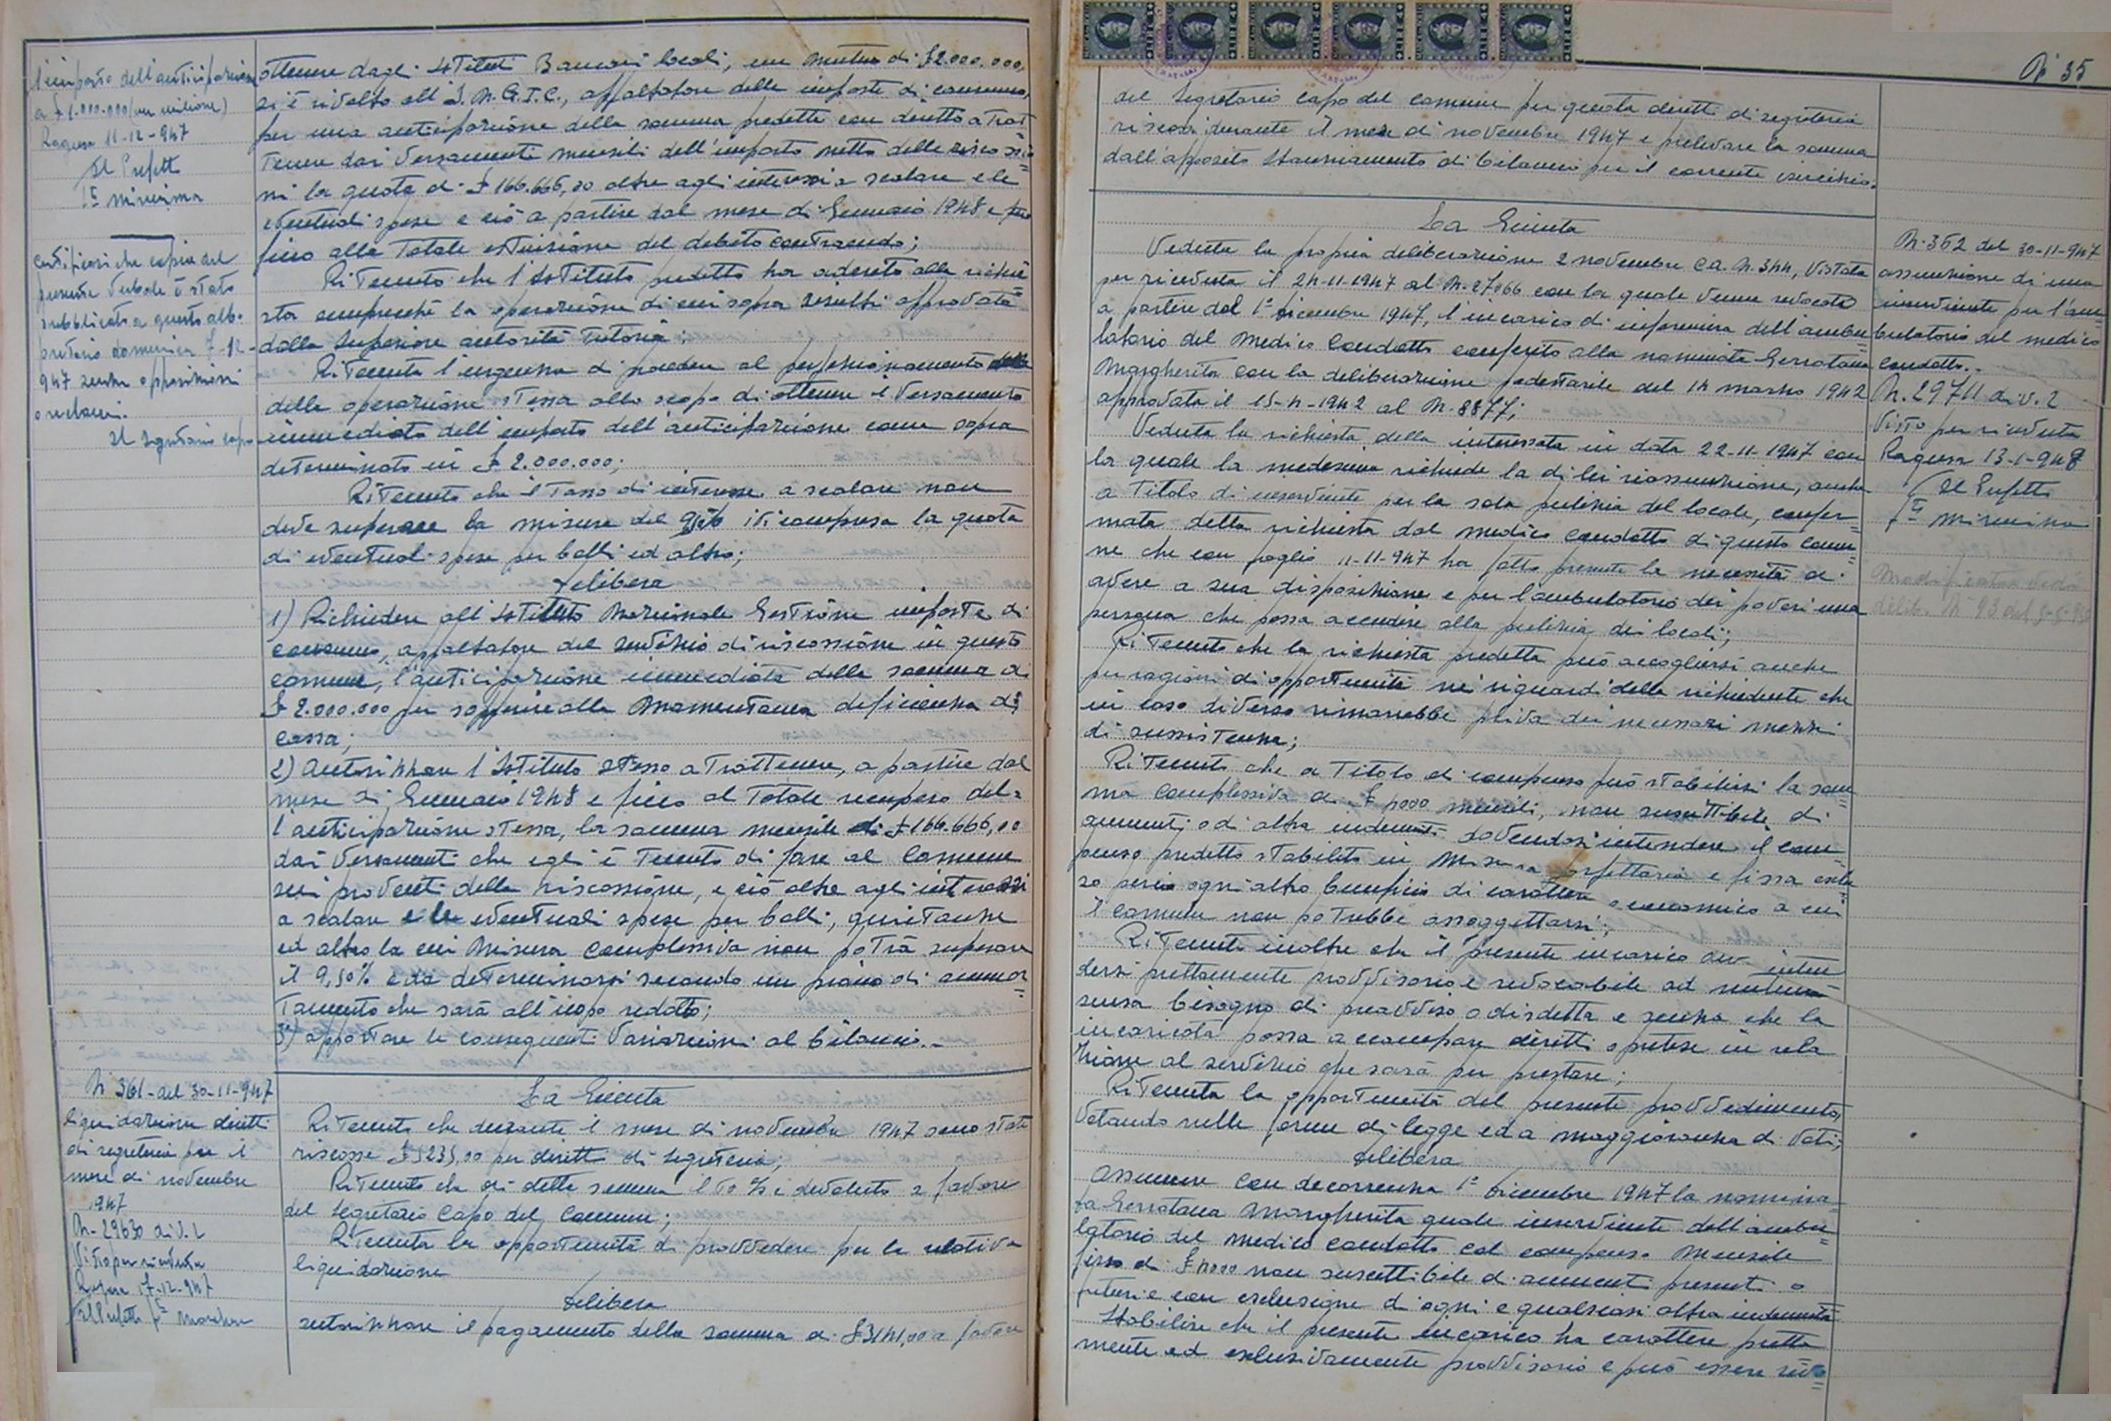 l'importo dell'anticipazione
a £ 1.000.000 (un milione)
Ragusa 11-12-947
Il Prefetto
certificasi che copia del
presente verbale è stato
pubblicato a questo albo
pretorio domenica 7-12-
947 senza opposizioni
o reclami.
Il Segretario capo
ottenere dagli Istituti Bancari locali, un mutuo di £ 2.000.000,
si è rivolto all'I.N.G.I.C., appaltatore delle imposte di consumo,
per una anticipazione della somma predetta con diritto a trat
tenere dai versamenti mensili dell'importo netto delle riscossio
ni la quota di £ 166.666,00 oltre agli interessi a scalare e le
eventuali spese e ciò a partire dal mese di Gennaio 1948 e
fino alla totale estinzione del debito contraendo;
Ritenuto che l'Istituto predetto ha aderito alla richie
sta compreschè la operazione di cui sopra risulti approvata
dalla Superiore autorità tutoria;
Ritenuta l'urgenza di procedere al perfezionamento
della operazione stessa allo scopo di ottenere il versamento
immediato dell'importo dell'anticipazione come sopra
determinato in £ 2.000.000;
Ritenuto che il tasso di interesse a scalare non
deve superare la misura del 9,50% ivi compresa la quota
di eventuali spese per bolli ed altro;
Delibera
1) Richiedere all'Istituto Nazionale Gestione imposte di
consumo, appaltatore del servizio di riscossione in questo
comune, l'anticipazione immediata della somma di
£ 2.000.000 per sopperire alla momentanea deficienza di
cassa;
2) Autorizzare l'Istituto stesso a trattenere, a partire dal
mese di Gennaio 1948 e fino al totale recupero del=
l'anticipazione stessa, la somma mensile di £ 166.666,00
dai versamenti che egli è tenuto di fare al Comune
sui proventi della riscossione, e ciò oltre agli interessi
a scalare e le eventuali spese per bolli, quietanze
ed altro la cui misura complessiva non potrà superare
il 9,50% e da determinarsi secondo un piano di ammor=
tamento che sarà all'uopo redatto;
3°) apportare le conseguenti variazioni al bilancio.-
N. 361 - del 30-11-947
liquidazione diritti
di segreteria per il
mese di novembre
1947
N. 29630 div. 2
Visto per ricevuta
Ragusa 17-12-947
Il Prefetto
La Giunta
Ritenuto che durante il mese di novembre 1947 sono state
riscosse £ 5235,00 per diritti di Segreteria;
Ritenuto che di detta somma il 60% è devoluto a favore
del Segretario Capo del Comune;
Ritenuta la opportunità di provvedere per la relativa
liquidazione
Delibera
autorizzare il pagamento della somma di £ 3141,00 a favore
N° 35
del Segretario Capo del comune per quota diritti di segreteria
riscossi durante il mese di novembre 1947 e prelevare la somma
dall'apposito stanziamento di bilancio per il corrente esercizio.
La Giunta
Veduta la propria deliberazione 2 novembre c.a. N. 344, vistata
per ricevuta il 24-11-1947 al N. 27066 con la quale venne revocato
a partire dal 1° dicembre 1947, l'incarico di infermiera dell'ambu
latorio del Medico Condotto conferito alla nominata Gerratana
Margherita con la deliberazione podestarile del 14 marzo 1942
approvata il 15-4-1942 al N. 8877;
Veduta la richiesta della interessata in data 22-11-1947 con
la quale la medesima richiede la di lei riassunzione, anche
a titolo di inserviente per la sola pulizia del locale, confer=
mata detta richiesta dal medico condotto di questo comu=
ne che con foglio 11-11-947 ha fatto presente la necessità di
avere a sua disposizione e per l'ambulatorio dei poveri una
persona che possa accudire alla pulizia dei locali;
Ritenuto che la richiesta predetta può accogliersi anche
per ragioni di opportunità nei riguardi della richiedente che
in caso diverso rimarrebbe priva dei necessari mezzi
di sussistenza;
Ritenuto che a titolo di compenso può stabilirsi la som=
ma complessiva di £ 4000 mensili, non suscettibile di
aumenti o di altra indennità dovendosi intendere il com=
penso predetto stabilito in misura forfettaria e fissa esclu
so perciò ogni altro beneficio di carattere economico a cui
il comune non potrebbe assoggettarsi;
Ritenuto inoltre che il presente incarico inten
dersi prettamente provvisorio e revocabile ad nutum
senza bisogno di preavviso o disdetta e senza che la
incaricata possa accampare diritti o pretese in rela
zione al servizio che sarà per prestare;
Ritenuta la opportunità del presente provvedimento,
votando nelle forme di legge ed a maggioranza di voti;
Delibera
Assumere con decorrenza 1° dicembre 1947 la nomina=
ta Gerratana Margherita quale inserviente dell'ambu=
latorio del medico condotto col compenso mensile
fisso di £ 4000 non suscettibile di aumenti presenti o
futuri e con esclusione di ogni e qualsiasi altra indennità
Stabilire che il presente incarico ha carattere pretta
mente ed esclusivamente provvisorio e può essere revo=
N. 362 del 30-11-947
assunzione di una
inserviente per l'am=
bulatorio del medico
condotto.-
N. 29711 div. 2
Visto per ricevuta
Ragusa 13-1-948
Il Prefetto
Modificata vedi
delib. N° 93 del